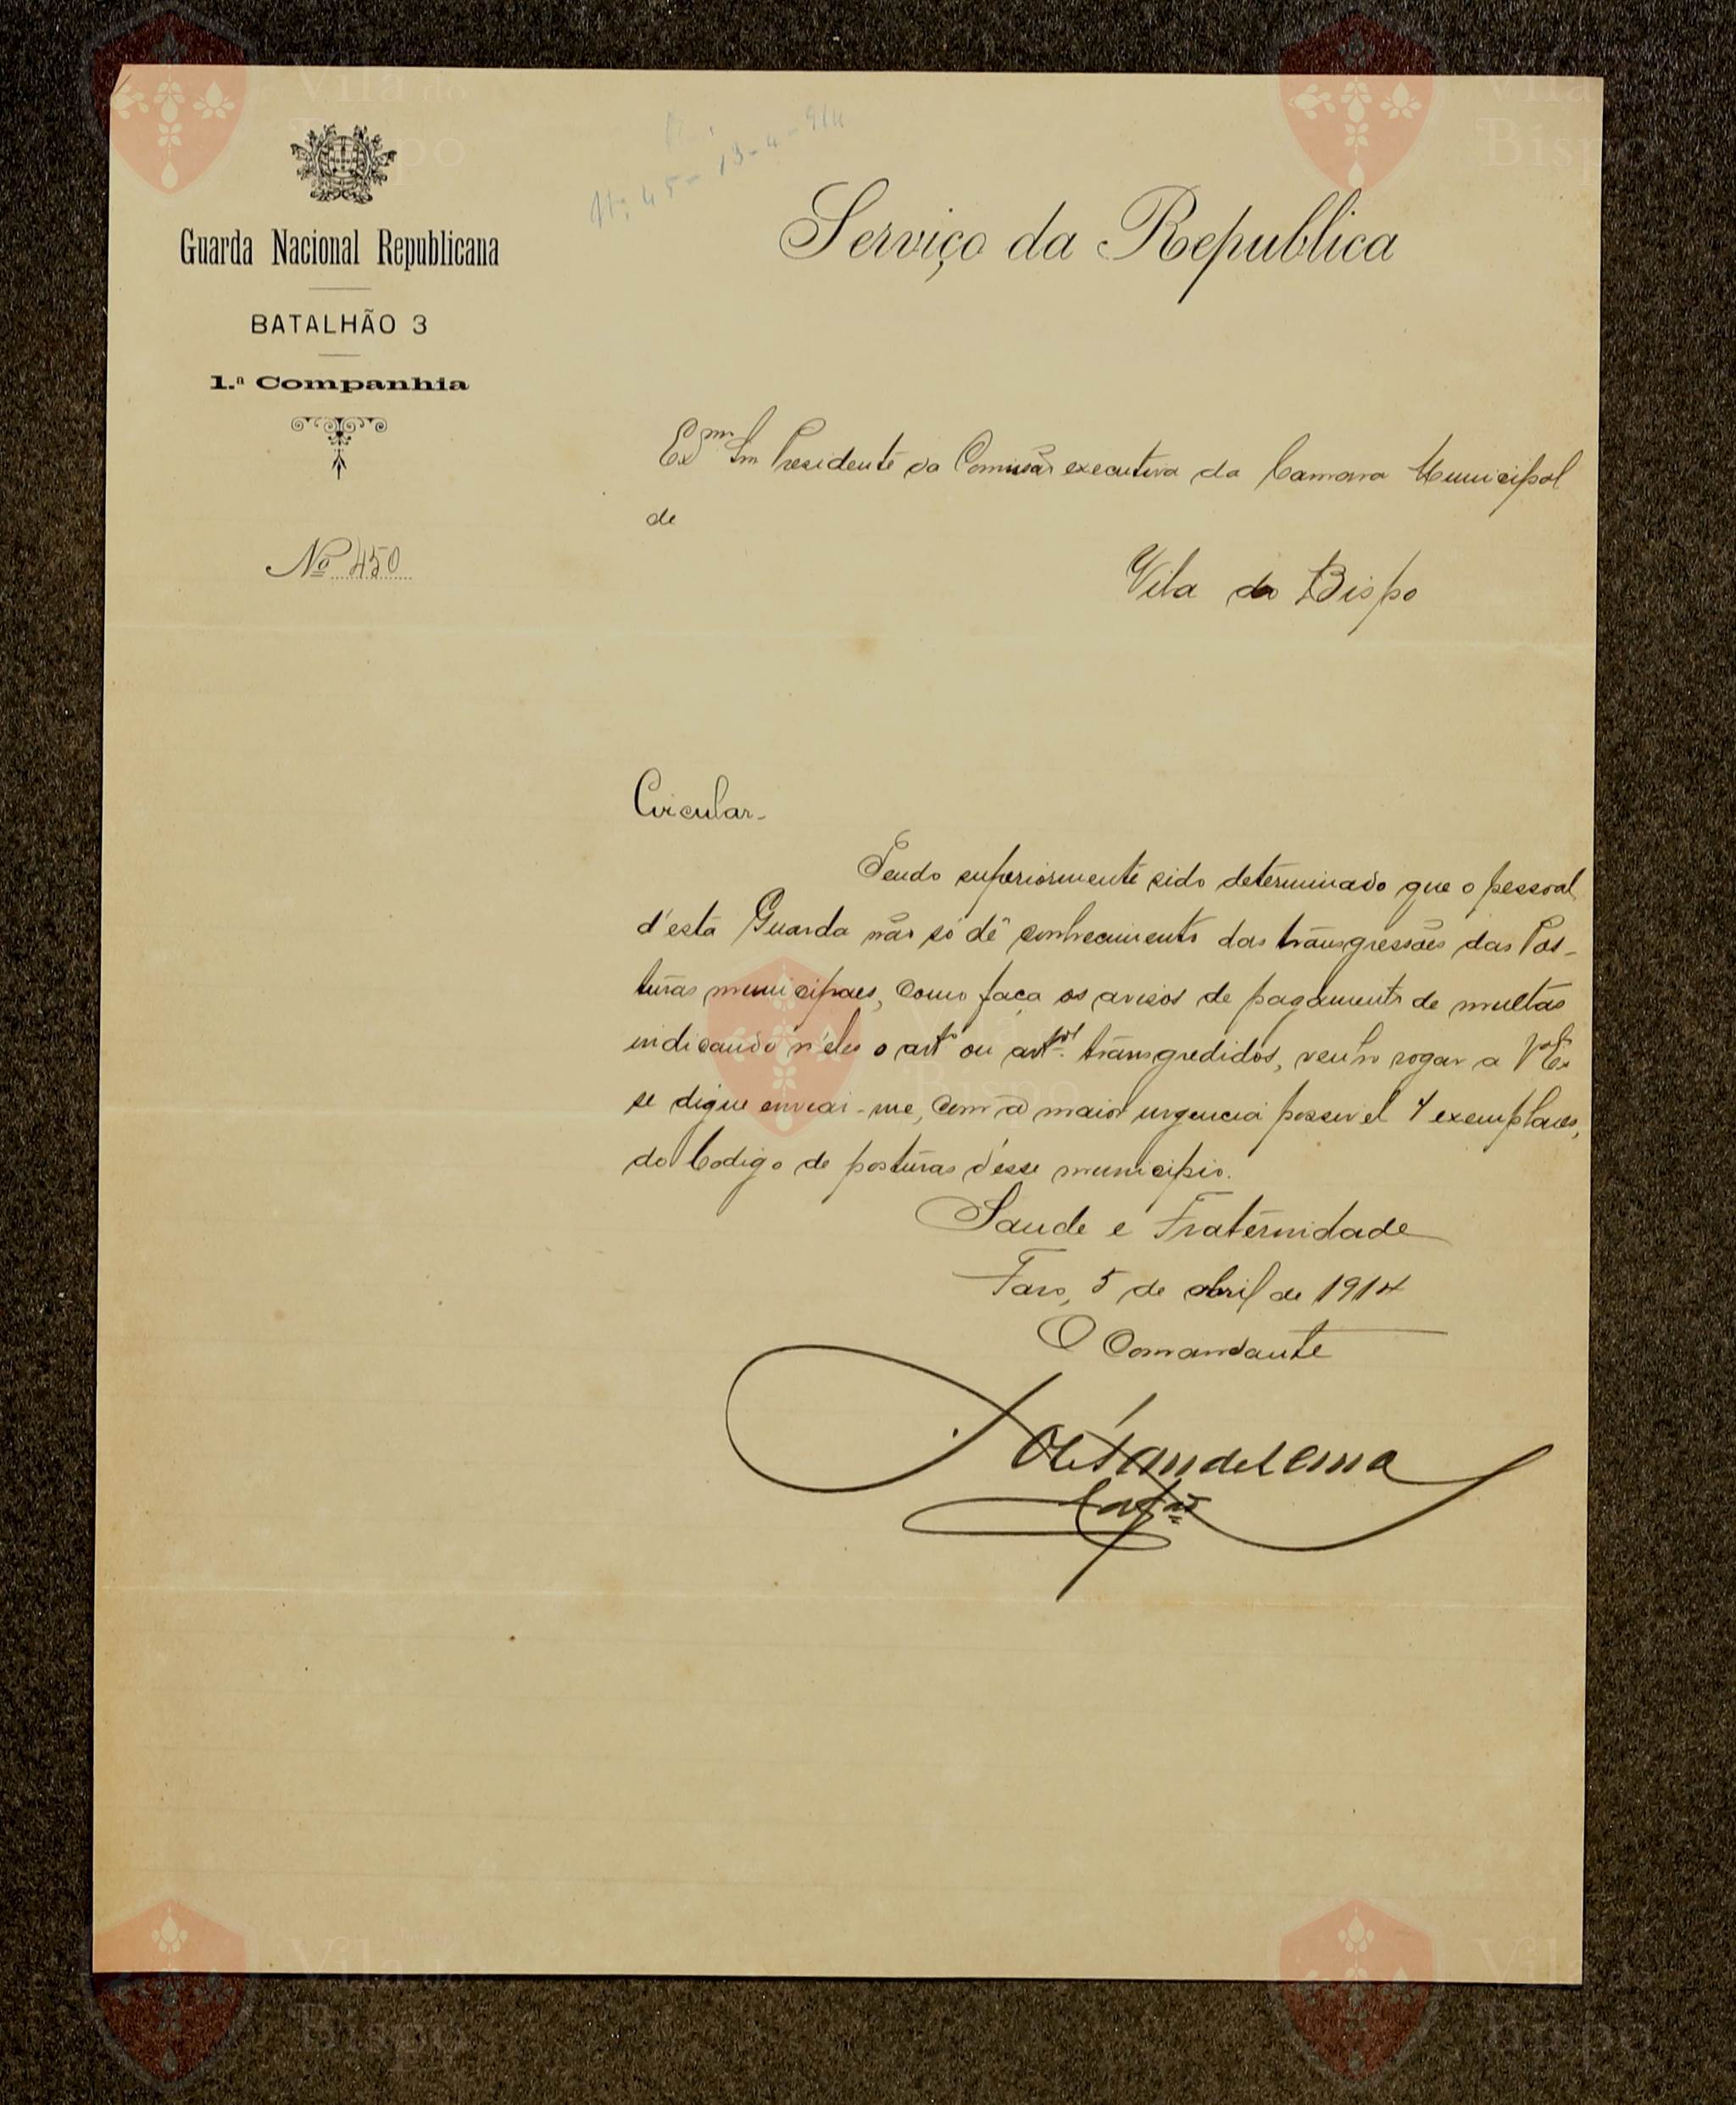 Guarda Nacional Republicana
BATALHÃO 3
1.ª Companhia
Nº 450
11:45-13-4-914
Serviço da Republica
Exmo Snr Presidente da Comissão executiva da Camara Municipal
de
Vila do Bispo
Circular-
Tendo superiormente sido determinado que o pessoal
d'esta Guarda não só dê conhecimento das transgressões das Pos-
turas municipaes, como faça os avisos de pagamento de multas
indicando n'eles o artº ou artos transgredidos, venho rogar a V. Ex
se digne enviar-me, com a maior urgencia possivel 4 exemplares,
do Codigo de posturas d'esse municipio.
Saude e Fraternidade
Faro, 5 de abril de 1914
O Comandante
Capm
Vila do
Bispo
Vila
Bispo
Vila
Bispo
Vila do
Bispo
Vila
Bispo